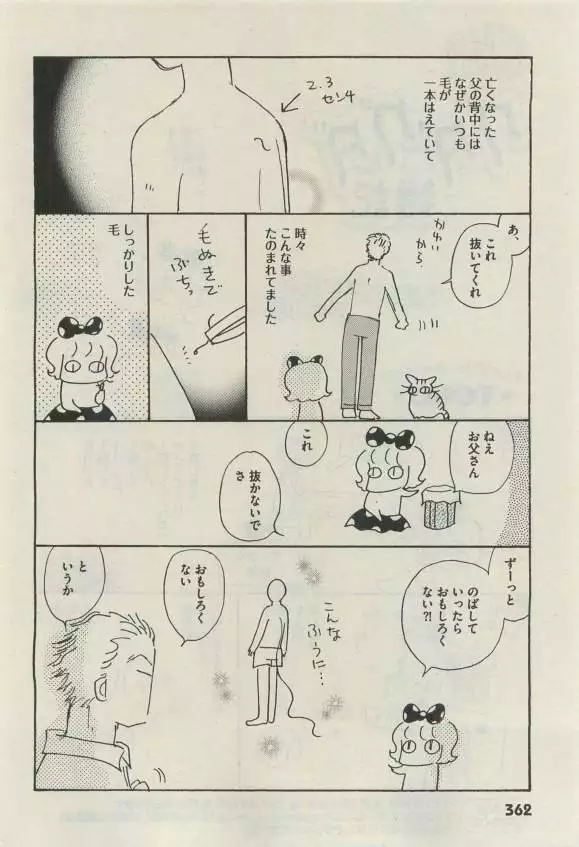 亡くなった
父の背中には
なぜかいつも
毛が
一本はえていて
2.3
センチ
あ、
これ
抜いてくれ
かゆい
から。
時々
こんな事
たのまれてました
毛ぬきで
ぶちっ
しっかりした
毛
ねえ
お父さん
これ
抜かないで
さ
ずーっと
のばして
いったら
おもしろく
ない?!
こんな
ふうに…
おもしろく
ない
と
いうか
362